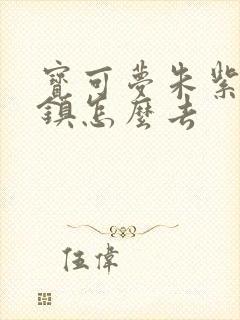 寶可夢朱紫
鎮怎麼去
伍偉